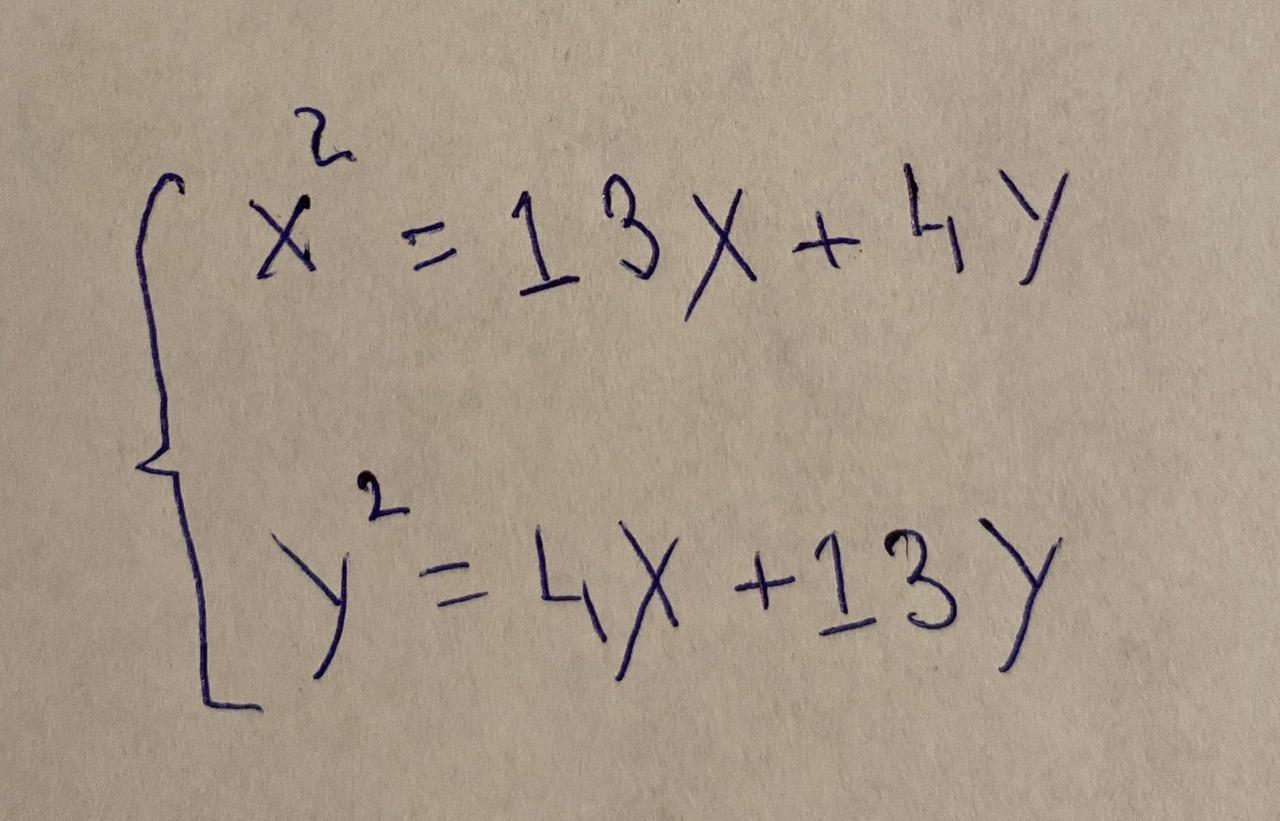 x² = 13x + 4y
y² = 4x + 13y